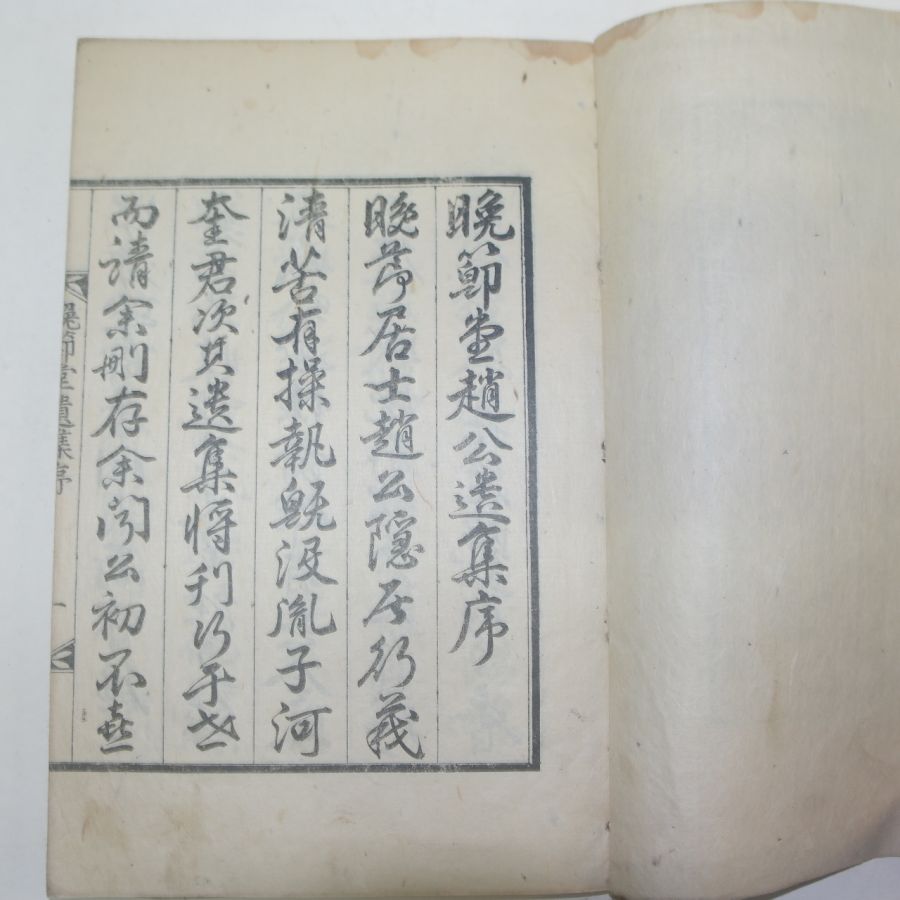 晩節堂趙公遺集序
晩節居士趙公隱居行義
清苦有操執旣沒胤子河
奎君次其遺集將刊行于世
而請余刪存余聞公初不喜
晩節堂遺集序
一